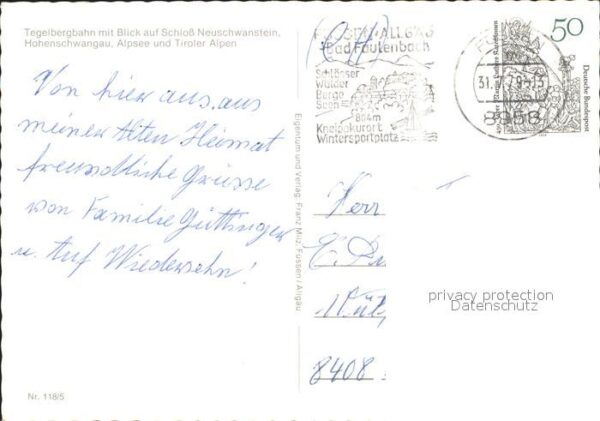 Tegelbergbahn mit Blick auf Schloß Neuschwanstein,
Hohenschwangau, Alpsee und Tiroler Alpen
Von hier aus, aus
meiner Alten Heimat
freundliche Grüsse
von Familie Güttinger
u. Auf Wiedersehn!
Nr. 118/5
Eigentum und Verlag: Franz Milz, Füssen/Allgäu
FÜSSEN-ALLGÄU
Bad Faulenbach
Schlösser
Wälder
Berge
Seen
804m
Kneippkurort
Wintersportplatz
31. 7.79-13
8958
50
Deutsche Bundespost
Herr
E.
8408
privacy protection
Datenschutz